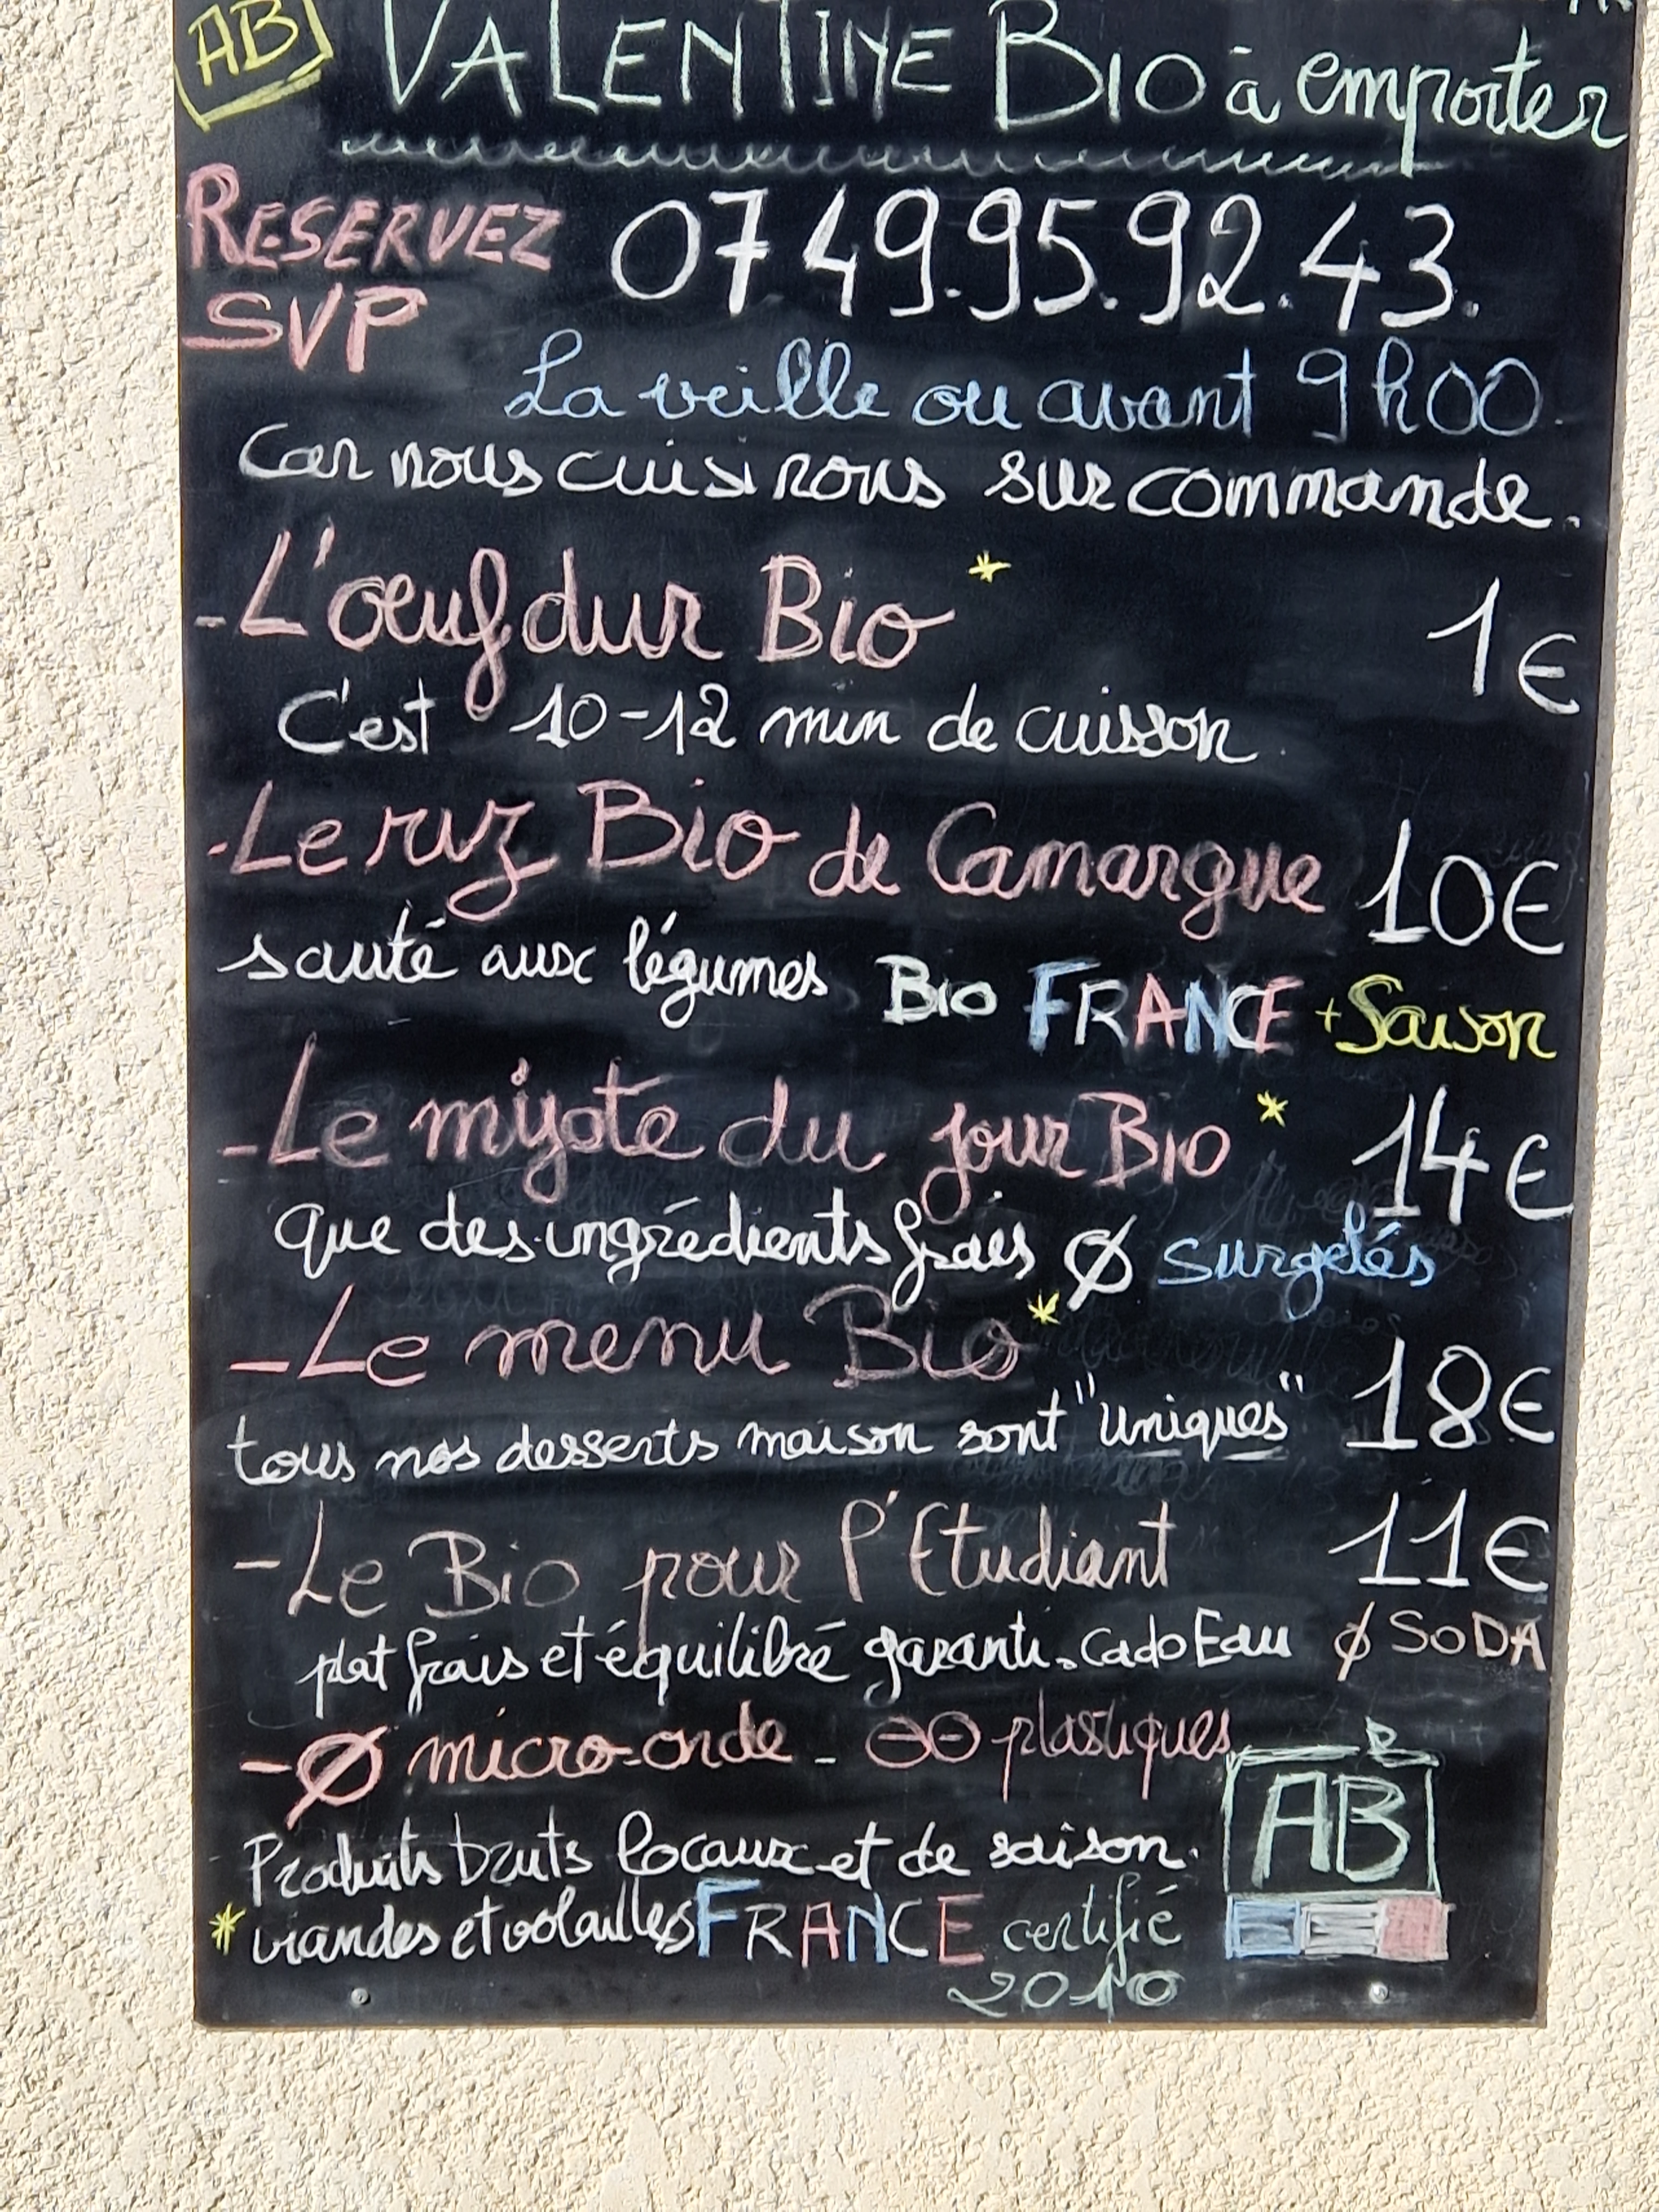 AB VALENTINE BIO à emporter
RESERVEZ 07 49.95.92.43.
SVP
La veille ou avant 9h00.
Car nous cuisinons sur commande.
- L'œuf dur Bio * 1€
C'est 10-12 min de cuisson
- Le riz Bio de Camargue 10€
sauté aux légumes BIO FRANCE + Saison
- Le mijoté du jour BIO * 14€
que des ingrédients frais Ø surgelés
- Le menu Bio * 18€
tous nos desserts maison sont "uniques"
- Le Bio pour l'Etudiant 11€
plat frais et équilibré garanti. cado Eau Ø SODA
- Ø micro-onde - plastiques
Produits bruts locaux et de saison. AB
* viandes et volailles FRANCE certifié
2010